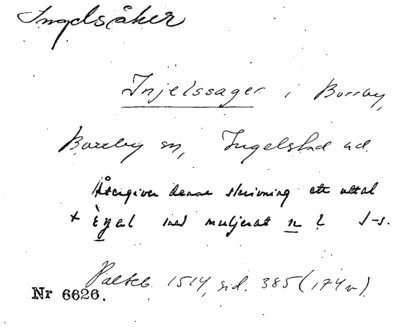 Ingelsåker
Injelssager i Borrby,
Borrby sn, Ingelstad hd.
Återgiver denna skrivning ett uttal
med muljerat n? J-s.
Palteb. 1514, sid. 385 (174 v).
Nr 6626.